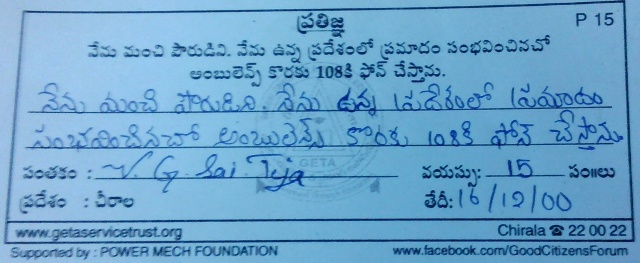 ప్రతిజ్ఞ P 15
నేను మంచి పౌరుడిని. నేను ఉన్న ప్రదేశంలో ప్రమాదం సంభవించినచో
అంబులెన్స్ కొరకు 108కి ఫోన్ చేస్తాను.
నేను మంచి పౌరుడిని. నేను ఉన్న ప్రదేశంలో ప్రమాదం
సంభవించినచో అంబులెన్స్ కొరకు 108కి ఫోన్ చేస్తాను
సంతకం : V. G. Sai. Teja వయస్సు: 15 సం॥లు
ప్రదేశం : చీరాల తేదీ: 16/12/00
GETA
www.getaservicetrust.org Chirala ☎ 22 00 22
Supported by : POWER MECH FOUNDATION www.facebook.com/GoodCitizensForum